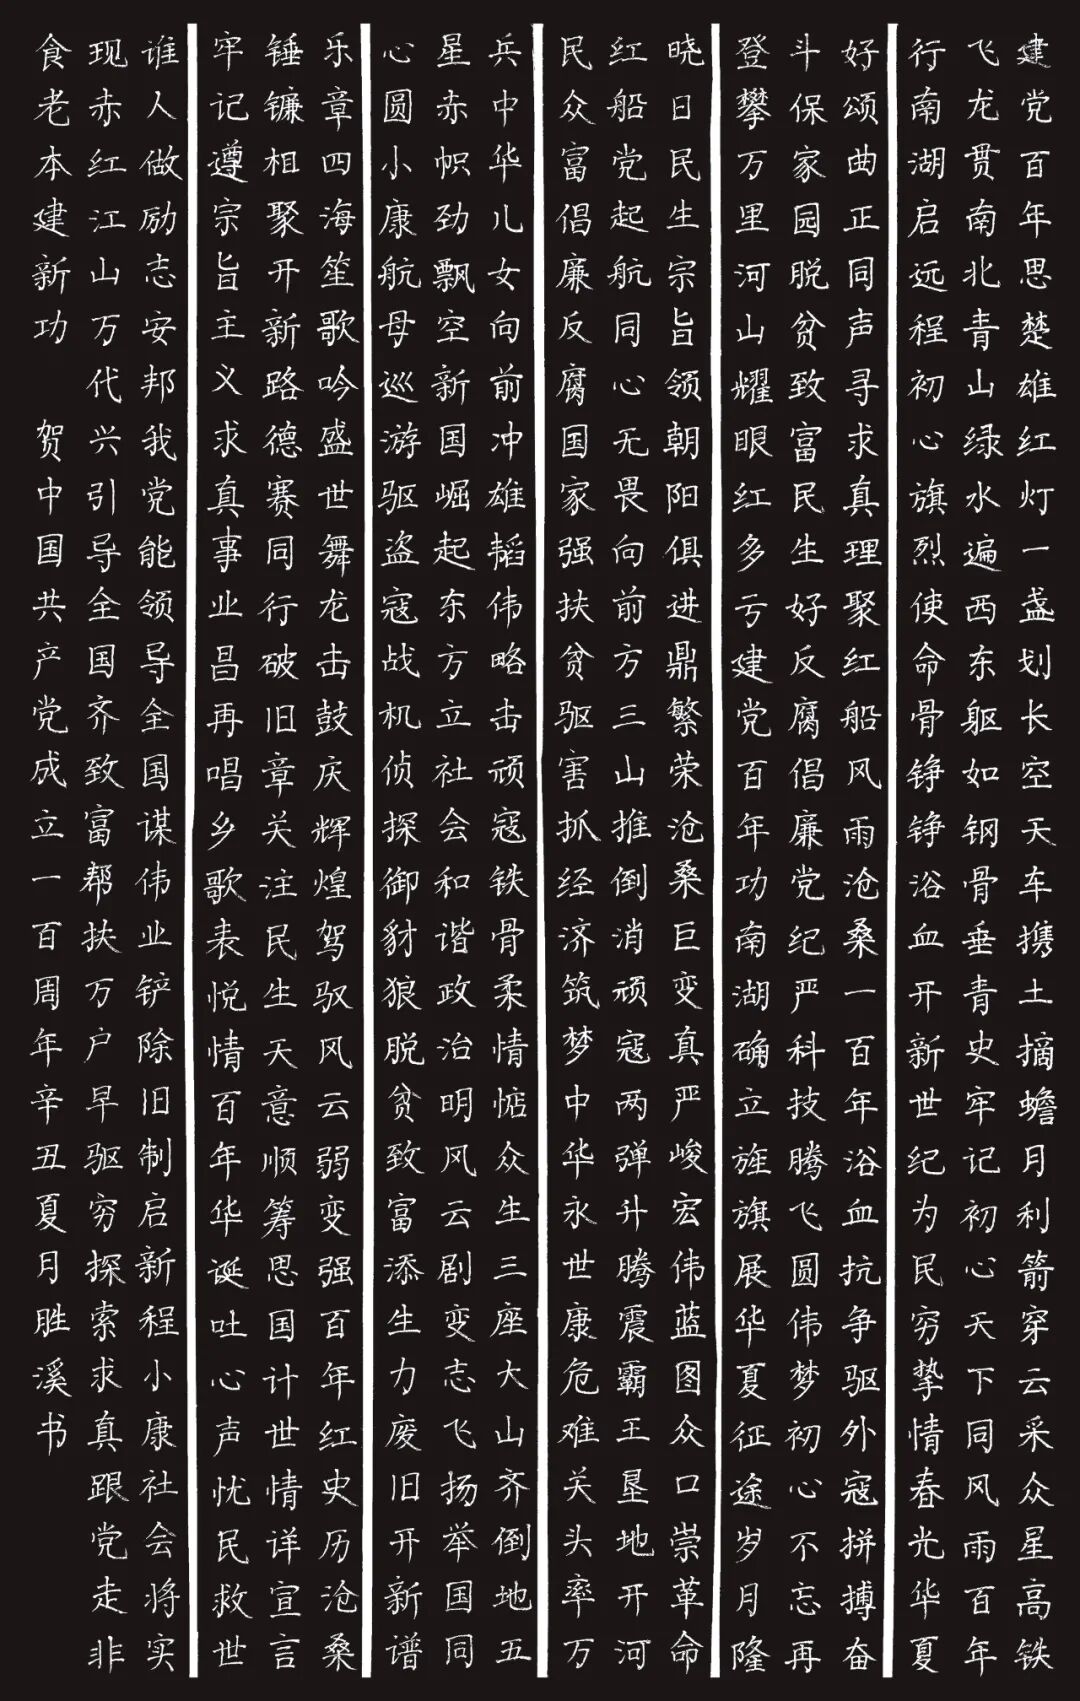 建党百年思楚雄红灯一盏划长空天车携土摘蟾月利箭穿云采众星高铁
飞龙贯南北青山绿水遍西东躯如钢骨垂青史牢记初心天下同风雨百年
行南湖启远程初心旗烈使命骨铮铮浴血开新世纪为民穷挚情春光华夏
好颂曲正同声寻求真理聚红船风雨沧桑一百年浴血抗争驱外寇拼搏奋
斗保家园脱贫致富民生好反腐倡廉党纪严科技腾飞圆伟梦初心不忘再
登攀万里河山耀眼红多亏建党百年功南湖确立旌旗展华夏征途岁月隆
晓日民生宗旨领朝阳俱进鼎繁荣沧桑巨变真严峻宏伟蓝图众口崇革命
红船党起航同心无畏向前方三山推倒消顽寇两弹升腾震霸王垦地开河
民众富倡廉反腐国家强扶贫驱害抓经济筑梦中华永世康危难关头率万
兵中华儿女向前冲雄韬伟略击顽寇铁骨柔情惦众生三座大山齐倒地五
星赤帜劲飘空新国崛起东方立社会和谐政治明风云剧变志飞扬举国同
心圆小康航母巡游驱盗寇战机侦探御豺狼脱贫致富添生力废旧开新谱
乐章四海笙歌吟盛世舞龙击鼓庆辉煌驾驭风云弱变强百年红史历沧桑
锤镰相聚开新路德赛同行破旧章关注民生天意顺筹思国计世情详宣言
牢记遵宗旨主义求真事业昌再唱乡歌表悦情百年华诞吐心声忧民救世
谁人做励志安邦我党能领导全国谋伟业铲除旧制启新程小康社会将实
现赤红江山万代兴引导全国齐致富帮扶万户早驱穷探索求真跟党走非
食老本建新功 贺中国共产党成立一百周年辛丑夏月胜溪书